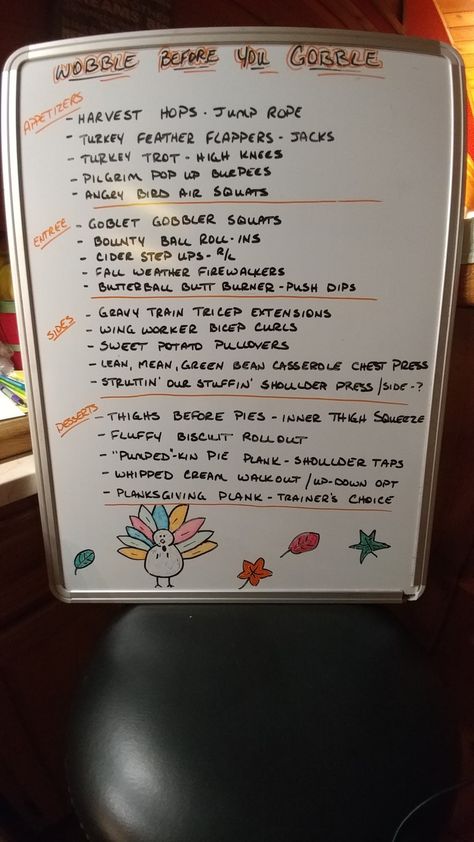 WOBBLE BEFORE YOU GOBBLE
APPETIZERS
- HARVEST HOPS - JUMP ROPE
- TURKEY FEATHER FLAPPERS - JACKS
- TURKEY TROT - HIGH KNEES
- PILGRIM POP UP BURPEES
- ANGRY BIRD AIR SQUATS
ENTREE
- GOBLET GOBBLER SQUATS
- BOUNTY BALL ROLL-INS
- CIDER STEP UPS - R/L
- FALL WEATHER FIREWALKERS
- BUTTERBALL BUTT BURNER - PUSH DIPS
SIDES
- GRAVY TRAIN TRICEP EXTENSIONS
- WING WORKER BICEP CURLS
- SWEET POTATO PULLOVERS
- LEAN, MEAN, GREEN BEAN CASSEROLE CHEST PRESS
- STRUTTIN' OUR STUFFIN' SHOULDER PRESS/SIDE-?
DESSERTS
- THIGHS BEFORE PIES - INNER THIGH SQUEEZE
- FLUFFY BISCUIT ROLLOUT
- "PUMPED"-KIN PIE PLANK - SHOULDER TAPS
- WHIPPED CREAM WALKOUT/UP-DOWN OPT
- PLANKSGIVING PLANK - TRAINER'S CHOICE